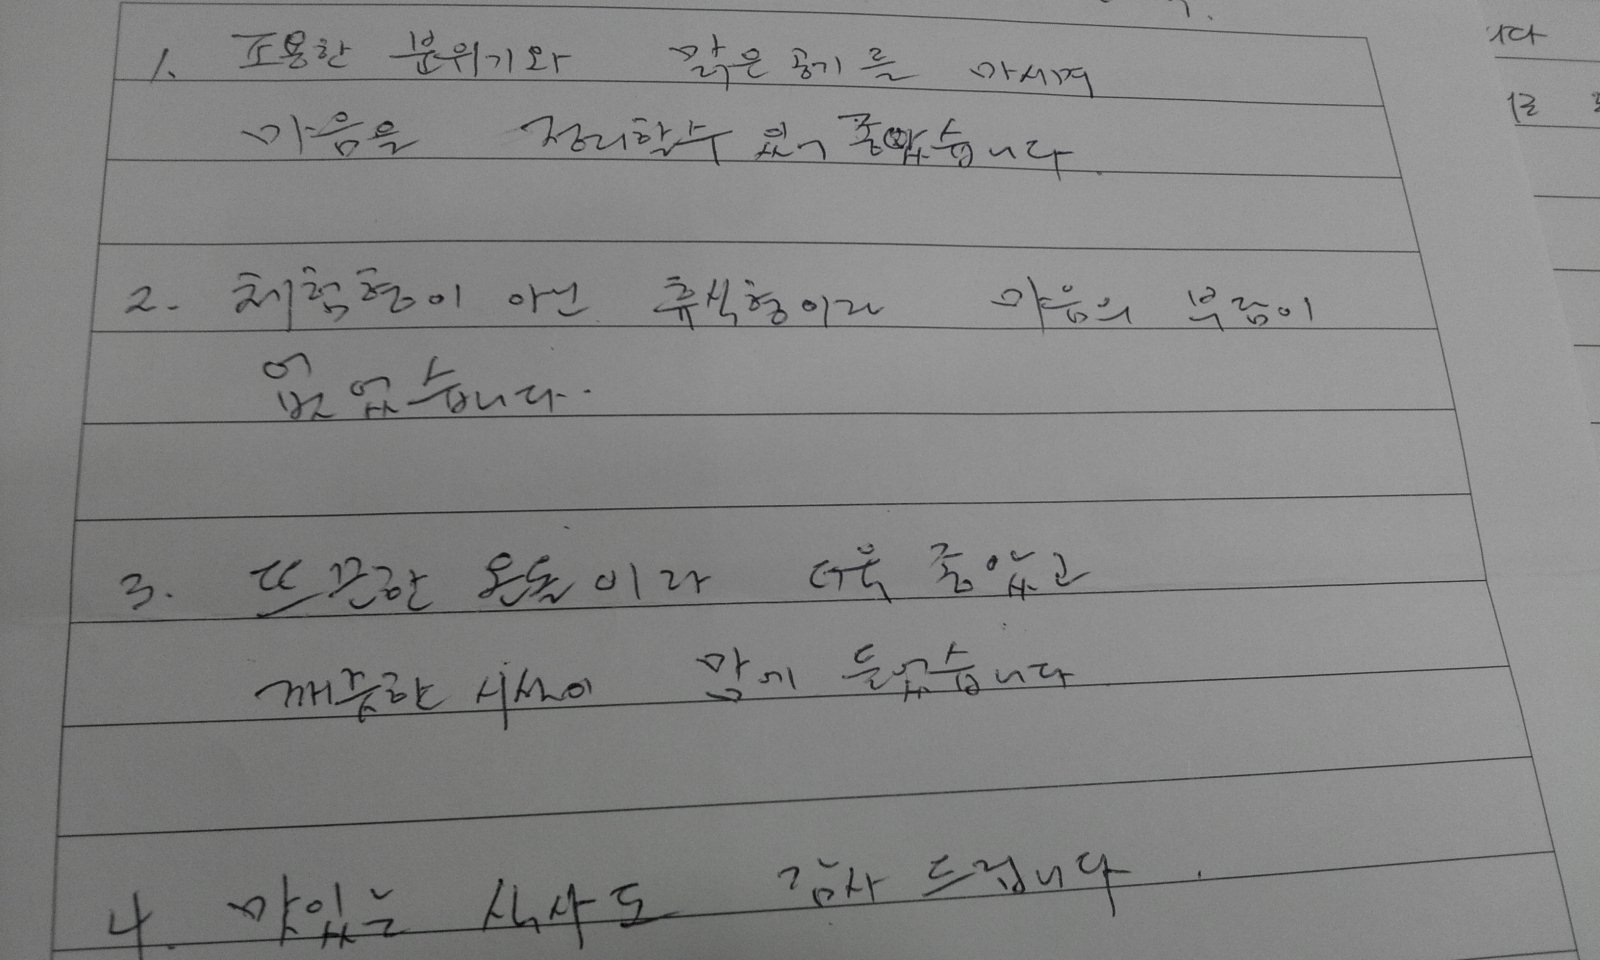 1. 조용한 분위기와 맑은 공기를 마시며
마음을 정리할수 있어 좋았습니다.
2. 체험형이 아닌 휴식형이라 마음의 부담이
없었습니다.
3. 따끈한 온돌이라 더욱 좋았고
깨끗한 시설이 맘에 들었습니다
4. 맛있는 식사도 감사 드립니다.